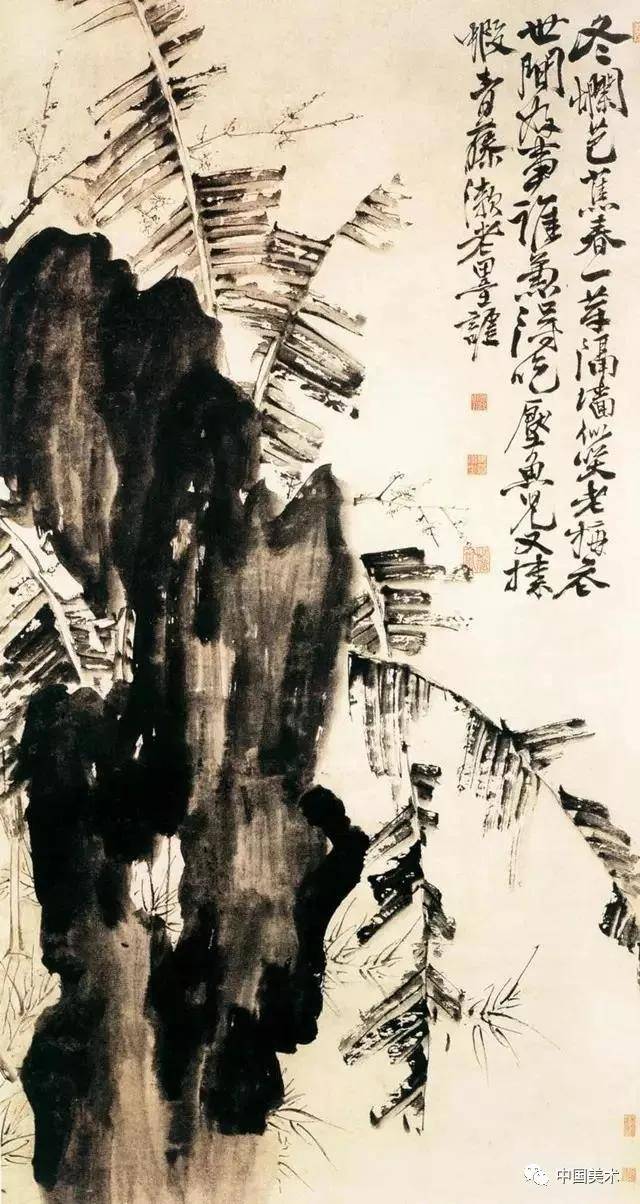 冬爛芭蕉春一芽隔墻似笑老梅花
世間好事誰兼得吃厭魚兒又揀
蝦青藤漱老墨謔
中国美术